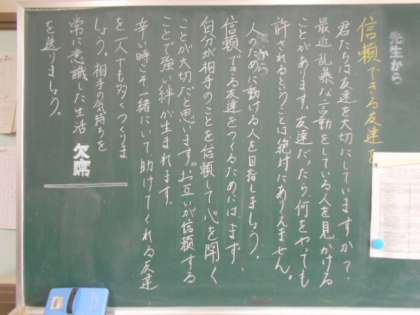 先生から
信頼できる友達を
君たちは友達を大切にしていますか?
最近乱暴な言動をしている人を見かける
ことがあります。友達だったら何をやっても
許されるということは絶対にありえません。
人のために動ける人を目指しましょう。
信頼できる友達をつくるためにはまず、
自分が相手のことを信頼して心を開く
ことが大切だと思います。お互いが信頼する
ことで強い絆が生まれます。
辛い時こそ一緒にいて助けてくれる友達
を一人でも多くつくりま
しょう。相手の気持ちを
常に意識した生活
を送りましょう。
欠席